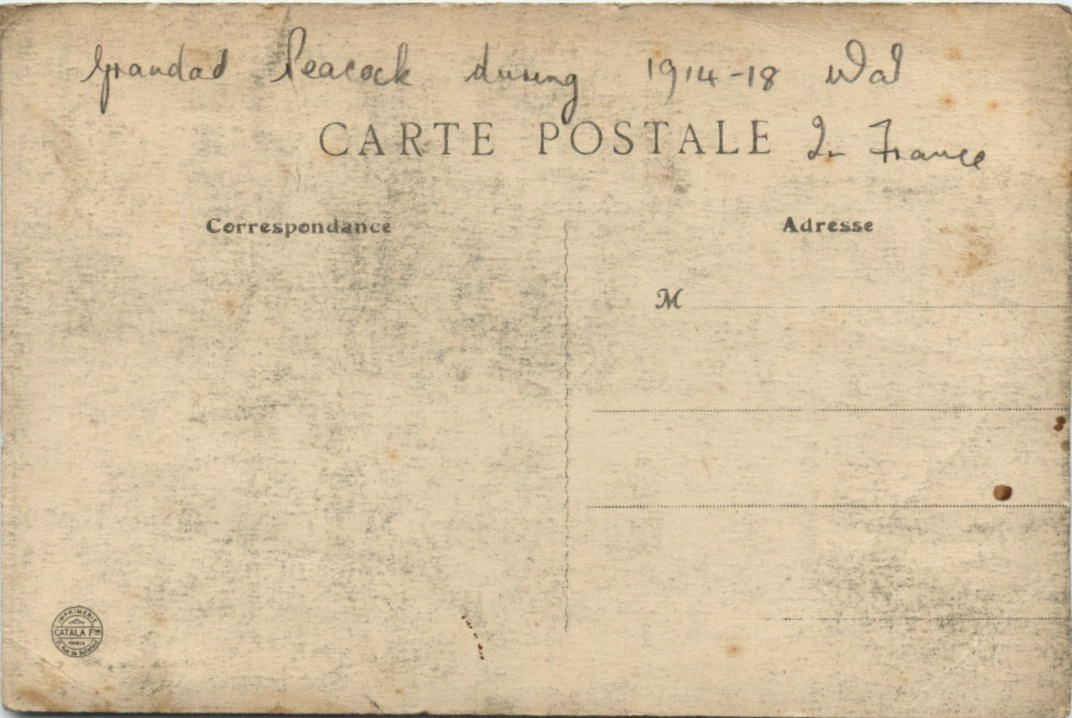 Grandad Peacock during 1914-18 War
CARTE POSTALE In France
Correspondance
Adresse
M
IMPRIMERIE
CATALA Fres
PARIS